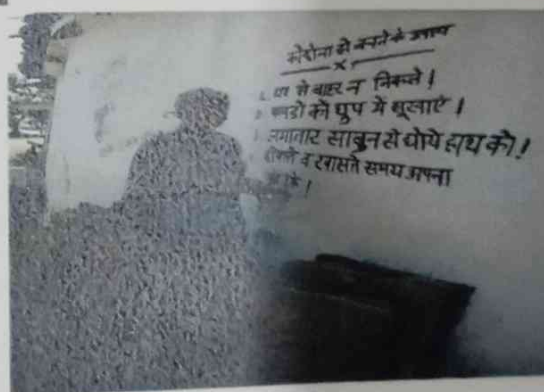 कोरोना से बचने के उपाय
घर से बाहर न निकले!
कपडो को धूप में सूखाएं!
लगातार साबुन से धोये हाथ को!
व खासते समय अपना